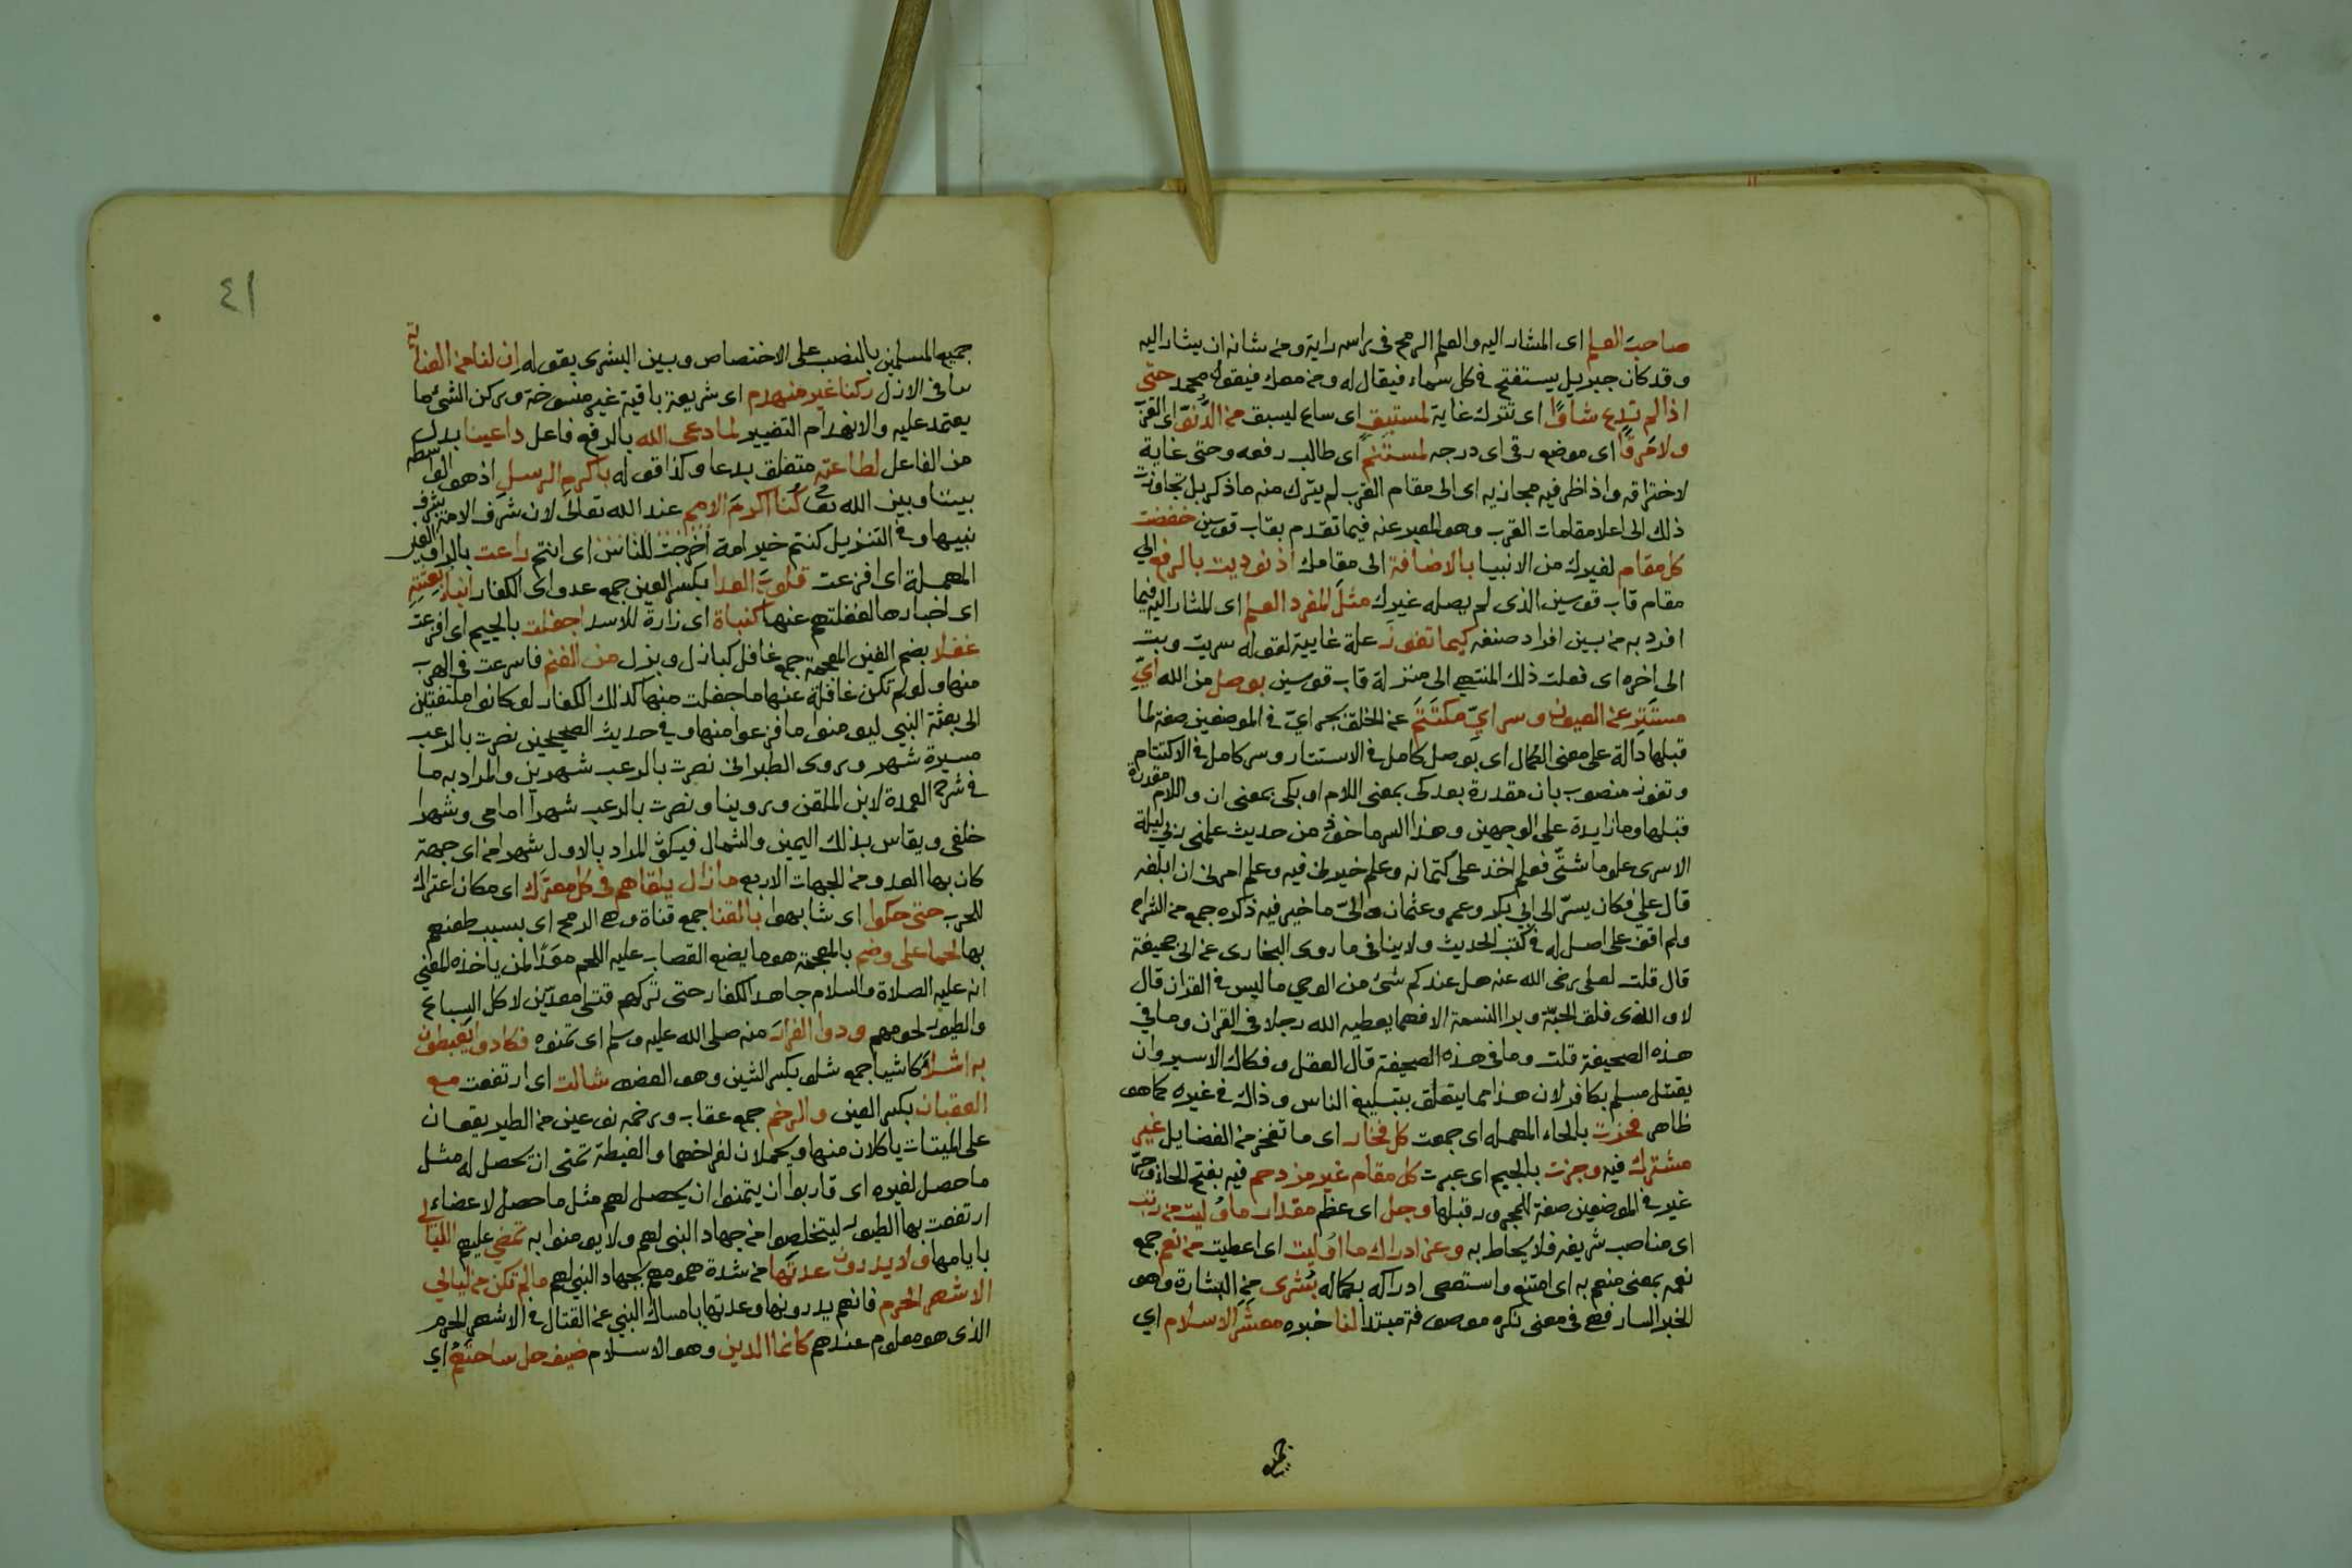 صاحبَ العلم اى المشار اليه والعلم الرمح فى راسه راية ومن شانه ان يشار اليه
وقد كان جبريل يستفتح فى كل سماء فيقال له ومن معك فيقول محمد حتى
اذا لم تدع شأوًا اى تترك غاية لمستبق اى ساع ليسبق من الدُّنوّ اى القرب
ولا مَرقًا اى موضع رقى اى درجه لمستنم اى طالب رفعه وحتى غاية
لاختراقه واذا ظرفيه مجازيه اى الى مقام القرب لم يترك منه ما ذكر بل تجاوزت
ذلك الى اعلا مقامات القرب وهو المعبر عنه فيما تقدم بقاب قوسين خفضت
كل مقام لغيرك من الانبيا بالاضافة الى مقامك اذ نوديت بالرفع الى
مقام قاب قوسين الذى لم يصله غيرك مثلَ المفرد العلم اى المشار اليه فيما
افرد به من بين افراد صنفه كيما تفوز علة غايية لقوله سريت وبت
الى اخره اى فعلت ذلك المنتهى الى منزلة قاب قوسين بوصل من الله اىِّ
مستَتِر عن العيون وسر اىِّ مكتَتَم عن الخلق بجر اىّ فى الموضعين صفة لما
قبلها دالة على معنى الكمال اى بوصل كامل فى الاستتار وسر كامل فى الاكتتام
وتفوز منصوب بان مقدرة بعد كى بمعنى اللام او بكى بمعنى ان واللام مقدرة
قبلها وما زايدة على الوجهين وهذا السر ماخوذ من حديث علمنى ربى ليلة
الاسرى علوما شتّى فعلم اخذ على كتمانه وعلم خيرنى فيه وعلم امرنى ان ابلغه
قال على فكان يسرّ الى ابى بكر وعمر وعثمان والىّ ما خير فيه ذكره جمع من الشراح
ولم اقف على اصل له فى كتب الحديث ولا ينافى ما روى البخارى عن ابى جحيفة
قال قلت لعلى رضى الله عنه هل عندكم شئ من الوحى ما ليس فى القران قال
لا والذى فلق الحبّة وبرا النسمة الا فهما يعطيه الله رجلا فى القران وما فى
هذه الصحيفة قلت وما فى هذه الصحيفة قال العقل وفكاك الاسير وان
يقتل مسلم بكافر لان هذا مما يتعلق بتبليغ الناس وذاك فى غيره كما هو
ظاهر فحزت بالحاء المهمله اى جمعت كل فخار اى ما تفخر من الفضايل غير
مشترك فيه وجزت بالجيم اى عبرت كل مقام غير مزدحم فيه بفتح الحاء وجرّ
غير فى الموضعين صفة للمجرور قبلها وجل اى عظم مقدار ما وُليت من رتب
اى مناصب شريفه فلا يحاط به وعز ادراك ما اُوليت اى اعطيت من نعم جمع
نعمه بمعنى منعم به اى امتنع واستعصى ادراكه بكماله بُشرى من البشارة وهو
الخبر السار فهى فى معنى نكره موصوفة مبتدا لنا خبره معشر الاسلام اى
جميع
٤١
جميع المسلمين بالنصب على الاختصاص وبين البشرى بقوله ان لنا من العناية
ما فى الازل ركنا غير منهدم اى شريعة باقية غير منسوخة وركن الشئ ما
يعتمد عليه والانهدام التغيير لما دعى الله بالرفع فاعل داعينا بدل
من الفاعل لطاعته متعلق بدعا وكذا قوله باكرم الرسل اذ هو الواسطه
بيننا وبين الله تعـ كُنا اكرمَ الامم عند الله تعالى لان شرف الامة بشرف
نبيها وفى التنزيل كنتم خير امة اُخرجت للناس اى انتم راعت بالراء والعين
المهملة اى افزعت قلوبَ العدا بكسر العين جمع عدو اى الكفار انباءُ بعثتِهِ
اى اخبارها لغفلتهم عنها كنباة اى زارة للاسد اجفلت بالجيم اى افزعت
غفلا بضم الغين المعجمة جمع غافل كبازل وبزل من الغنم فاسرعت فى الهرب
منها ولو لم تكن غافلة عنها ما جفلت منها كذلك الكفار لو كانوا ملتفتين
الى بعثة النبى ليومنوا ما فزعوا منها وفى حديث الصحيحين نصرت بالرعب
مسيرة شهر وروى الطبرانى نصرت بالرعب شهرين والمراد به ما
فى شرح العمدة لابن الملقن وروينا ونصرت بالرعب شهرا امامى وشهرا
خلفى ويقاس بذلك اليمين والشمال فيكون المراد بالاول شهر من اى جهة
كان بها العدو من الجهات الاربع ما زال يلقاهم فى كل معترك اى مكان اعتراك
للحرب حتى حكوا اى شابهوا بالقنا جمع قناة وهى الرمح اى بسبب طعنهم
بها لحما على وضم بالمعجمة هو ما يضع القصاب عليه اللحم معَدًّا لمن ياخذه المعنى
انه عليه الصلاة والسلام جاهد الكفار حتى تركهم قتلى معدّين لاكل السباع
والطيور لحومهم ودوا الفرارَ منه صلى الله عليه وسلم اى تمنوه فكادوا يغبطون
به اشلاءً كاشيا جمع شلو بكسر الشين وهو العضو شالت اى ارتفعت مع
العقبان بكسر العين والرخم جمع عقاب ورخمه نوعين من الطير يقعان
على الميتات ياكلان منها ويحملان لفراخهما والغبطة تمنى ان يحصل له مثل
ما حصل لغيره اى قاربوا ان يتمنوا ان يحصل لهم مثل ما حصل لاعضاء
ارتفعت بها الطيور ليتخلصوا من جهاد النبى لهم ولا يومنوا به تمضى عليهم الليالى
بايامها ولا يدرون عدتَها من شدة همومهم بجهاد النبى لهم ما لم تكن من ليالى
الاشهر الحرم فانهم يدرونها وعدتها بامساك النبى عن القتال فى الاشهر الحرم
الذى هو معلوم عندهم كانما الدين وهو الاسلام ضيف حل ساحتَهُم اى